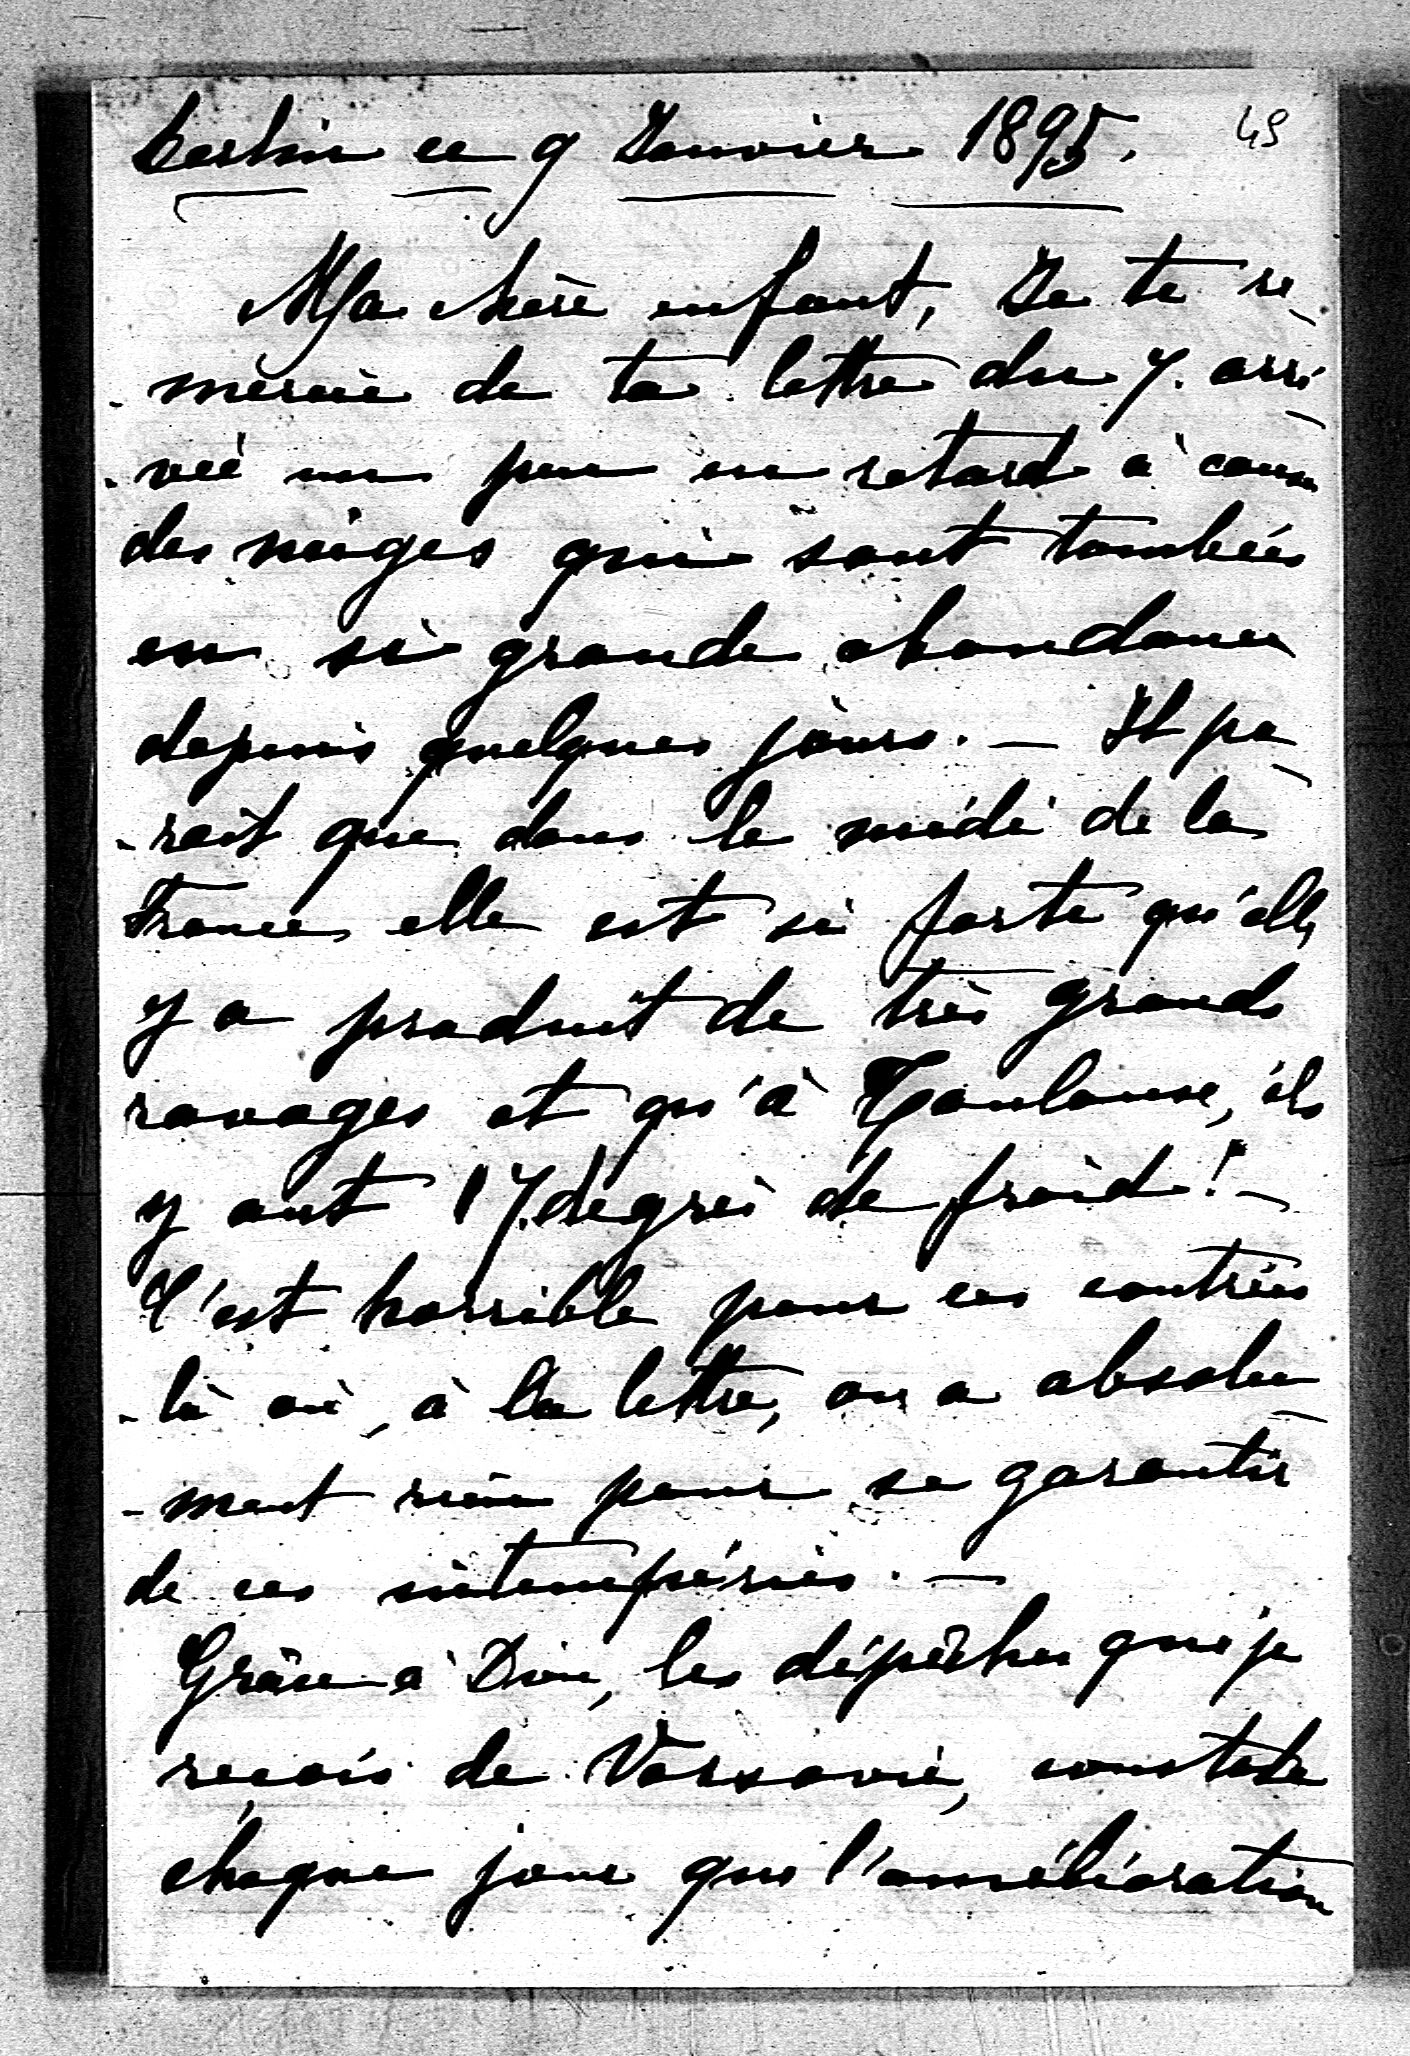 Berlin ce 9 Janvier 1895. 49
Ma chère enfant, Je te re-
-mercie de ta lettre du 7. arri-
-vée un peu en retard à cause
des neiges qui sont tombées
en si grande abondance
depuis quelques jours. — Il pa-
-rait que dans le midi de la
France, elle est si forte qu'elle
y a produit de très grands
ravages et qu'à Toulouse, ils
y ont 17. degrés de froid! —
C'est horrible pour ces contrées
-là où, à la lettre, on a absolu-
-ment rien pour se garantir
de ces intempéries. —
Grâce à Dieu, les dépêches que je
reçois de Varsovie, constate
chaque jour que l'amélioration